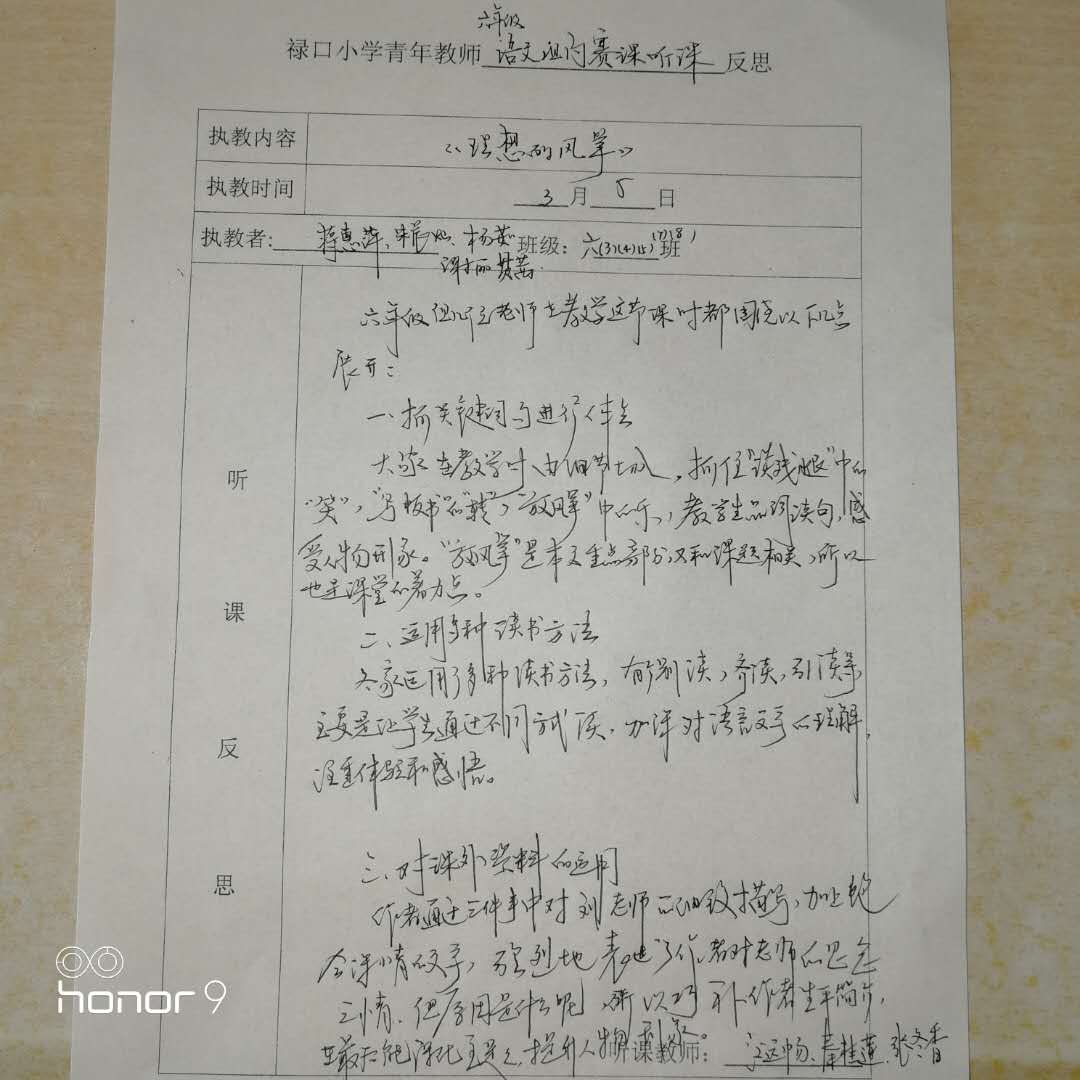 六年级
禄口小学青年教师 语文组内赛课听课 反思
执教内容 《理想的风筝》
执教时间 3 月 5 日
执教者: 蒋惠萍、 杨茹 班级: 六(3)(4)(5)(7)(8)班
谭丽
六年级组几位老师在教学这节课时都围绕以下几点
展开:
一、抓关键词句进行体会
大家在教学时,由细节切入,抓住“谈残腿”中的
“笑”,“写板书”的“转”,“放风筝”中的乐,教学生品词读句,感
受人物形象。“放风筝”是本文重点部分,又和课题相关,所以
也是课堂的着力点。
二、运用多种读书方法
大家运用了多种读书方法,有分别读,齐读,引读等,
主要是让学生通过不同方式读,加深对语言文字的理解,
注重体验和感悟。
三、对课外资料的运用
作者通过三件事中对刘老师的细致描写,加上饱
含深情的文字,强烈地表达了作者对老师的思念
之情。但原因是什么呢,所以巧补作者生平简介,
在最后能深化主题,提升人物形象。
听课教师: 秦桂莲、张冬香
听
课
反
思
honor 9